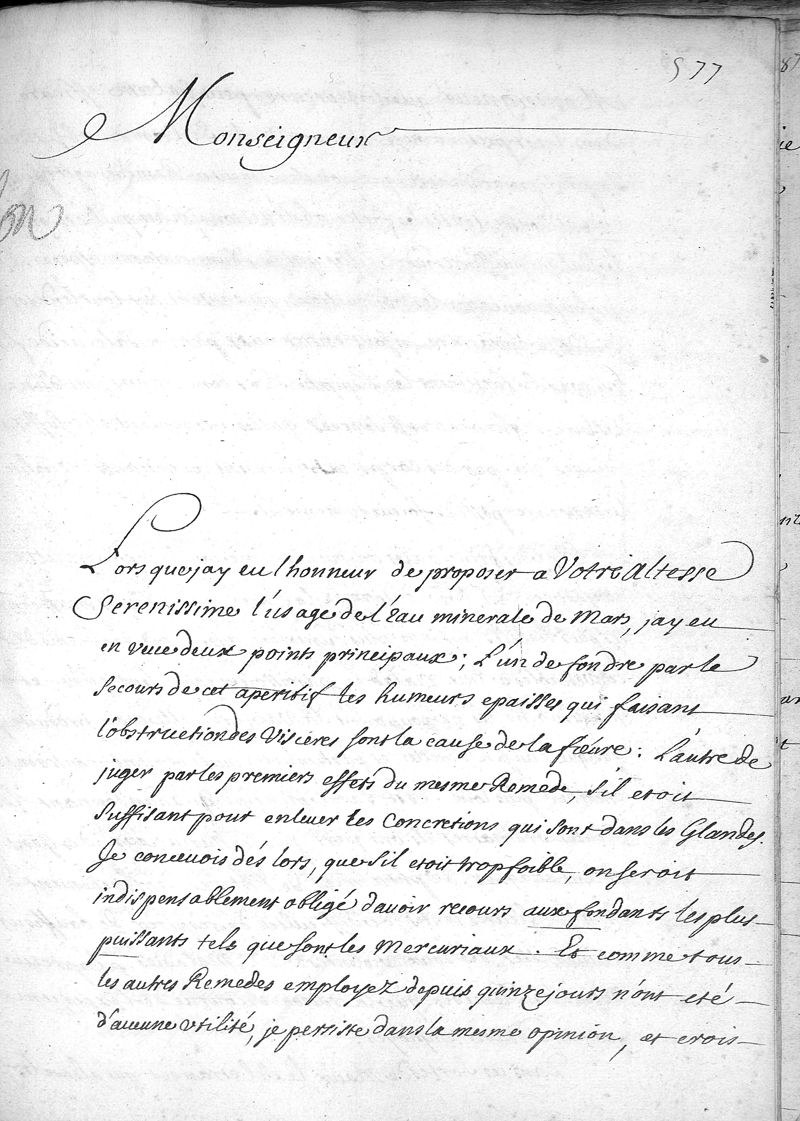 577
Monseigneur
Lors que jay eu l'honneur de proposer a Votre Altesse
Serenissime l'usage de l'Eau minerale de Mars, jay eu
en veüe deux points principaux; L'un de fondre par le
secours de cet aperitif les humeurs epaisses qui faisant
l'obstruction des Visceres sont la cause de la fiévre: L'autre de
juger par les premiers effets du mesme Remede, s'il etoit
suffisant pour enlever les concretions qui sont dans les Glandes.
Je concevois dés lors, que s'il etoit trop foible, on seroit
indispensablement obligé d'avoir recours aux fondants les plus
puissants tels que sont les Mercuriaux. Et comme tous
les autres Remedes employez depuis quinze jours n'ont eté
d'aucune utilité, je persiste dans la mesme opinion, et crois